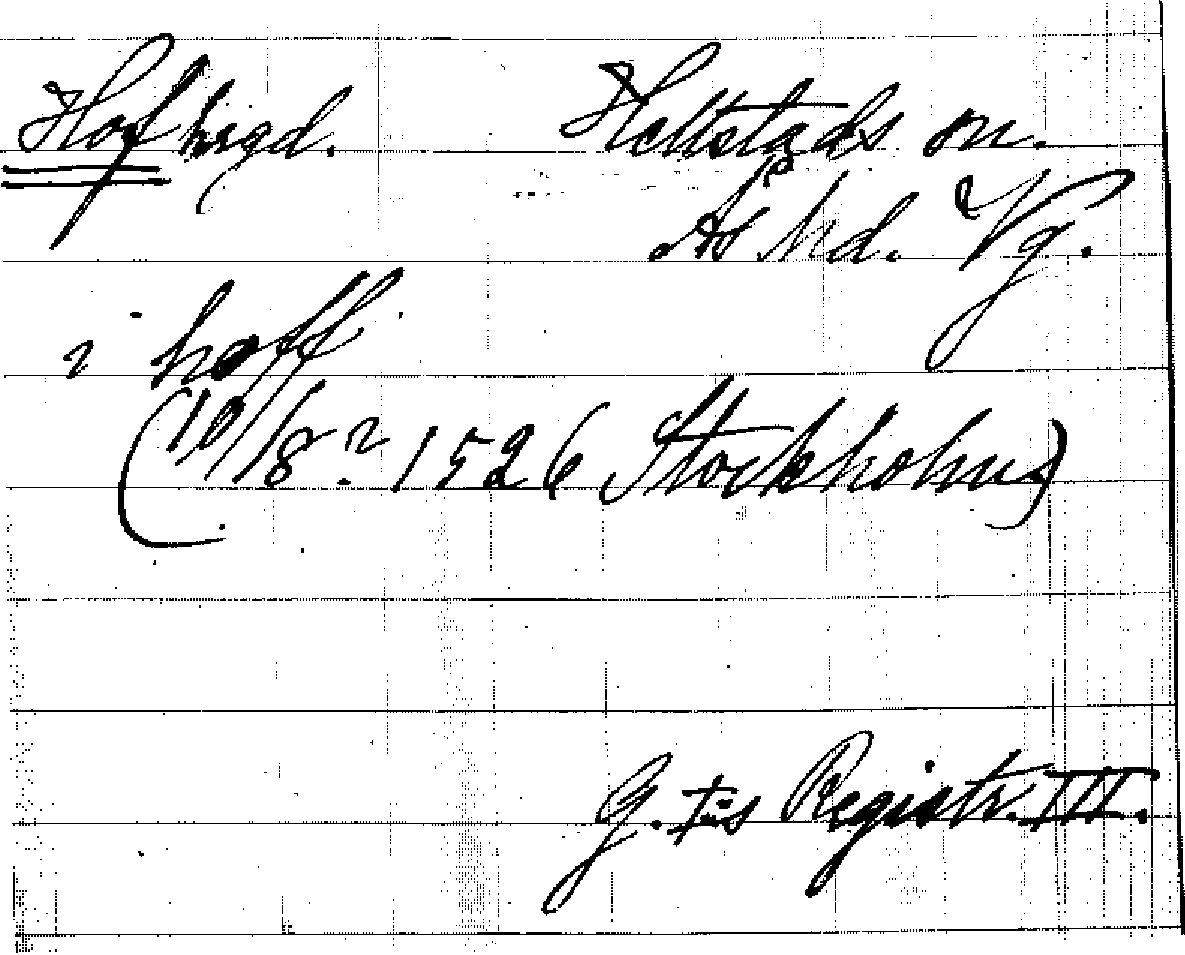 Hof hrgd. Hällstads sn.
Ås hd. Vg.
i hoff
(10/8? 1526 Stockholm)
G. I:s Registr. III.